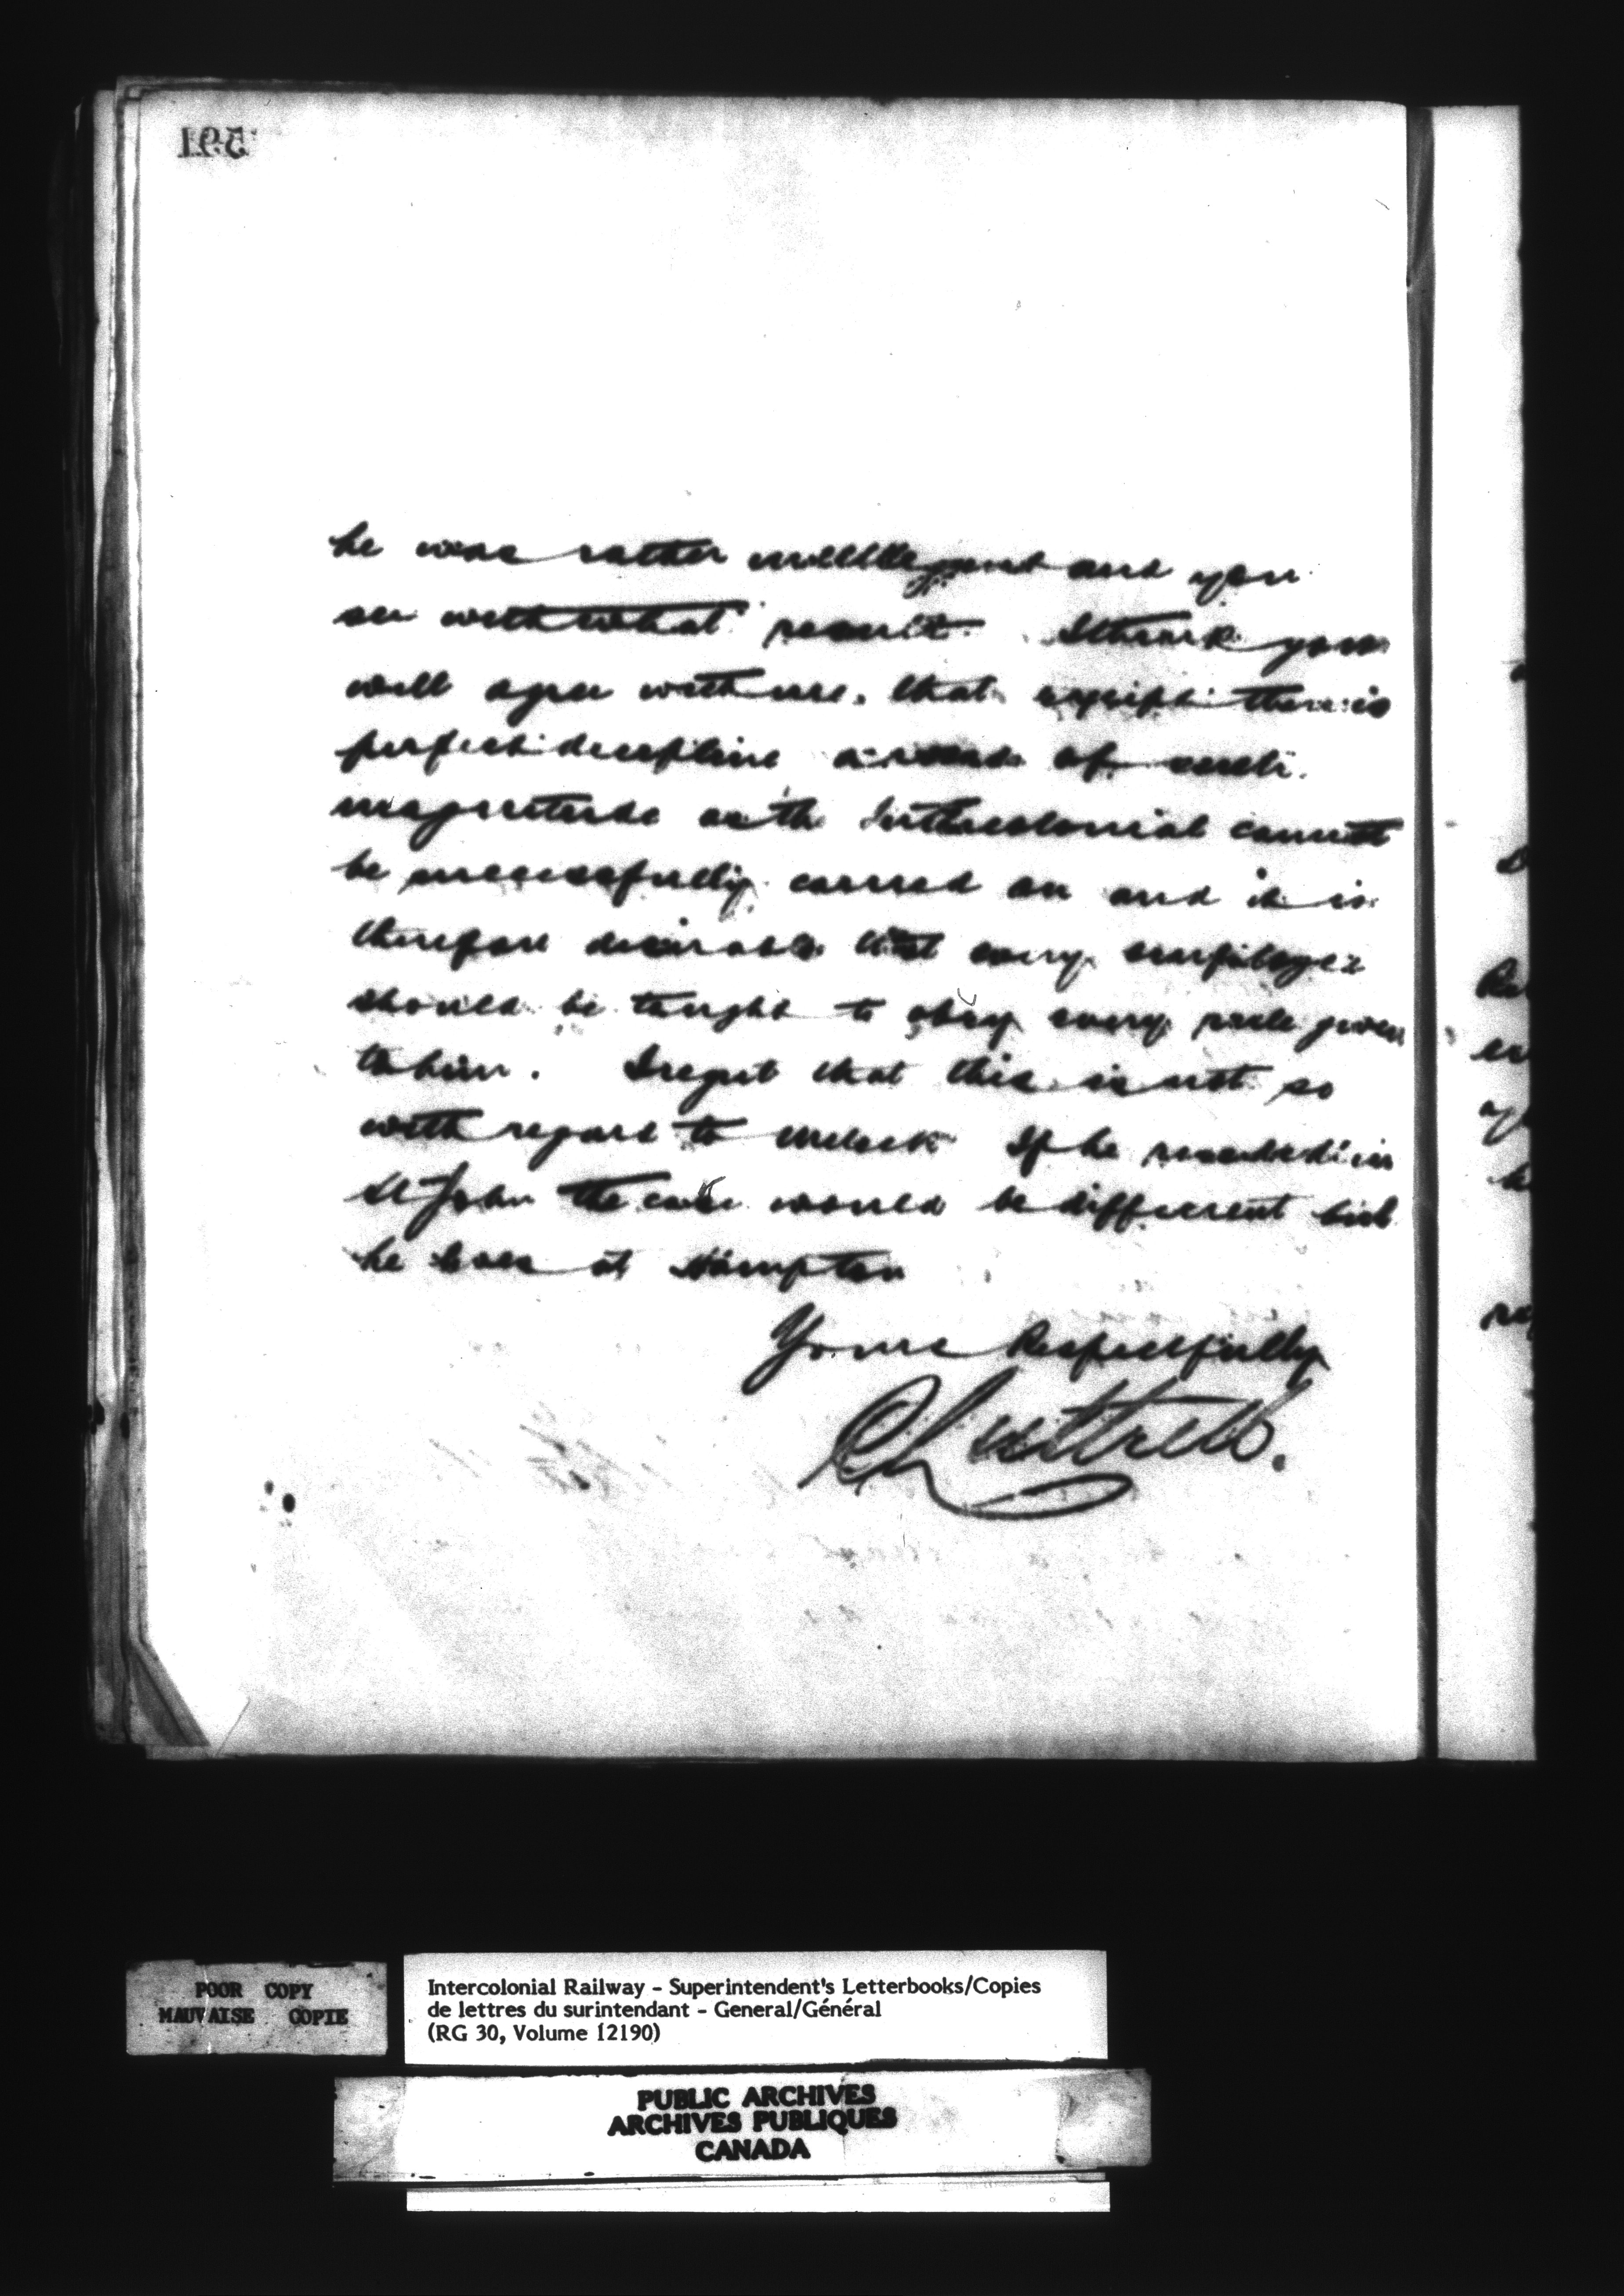 591
he was rather and you
see with what result. I think you
will agree with me, that except there is
perfect discipline a road of such
magnitude as the Intercolonial cannot
be successfully carried on and it is
therefore desirable that every employee
should be taught to obey every rule given
to him. I regret that this is not so
with regard to If he resided in
St John the case would be different but
he lives at Hampton
Yours Respectfully
C Luttrell.
POOR COPY
MAUVAISE COPIE
Intercolonial Railway - Superintendent's Letterbooks/Copies
de lettres du surintendant - General/Général
(RG 30, Volume 12190)
PUBLIC ARCHIVES
ARCHIVES PUBLIQUES
CANADA